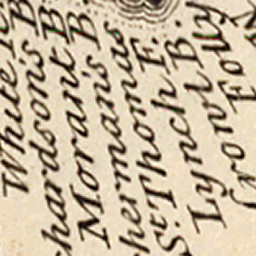 White R
chardson's B
Morant B.
hermanas
St. Thom F.
Lynch B.
Crow
Folly